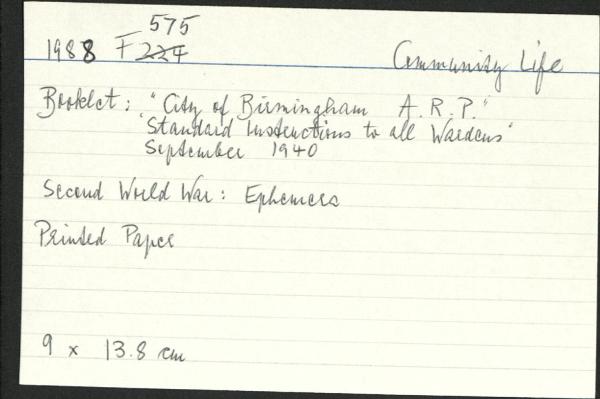 575
1988 F224 Community Life
Booklet: "City of Birmingham A.R.P."
'Standard Instructions to all Wardens'
September 1940
Second World War: Ephemera
Printed Paper
9 x 13.8 cm